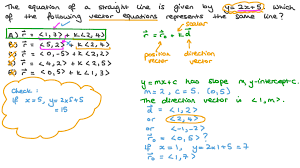 The equation of a straight line is given by y=2x+5. Which
of the following vector equations represents the same line?
scalar
A) r = <1,3> + k<2,4>
B) r = <5,2> + k<2,4>
C) r = <0,-5> + k<2,2>
D) r = <4,2> + k<2,5>
E) r = <0,5> + k<1,3>
r = r₀ + k d
position vector
direction vector
Check :
if x=5, y=2x5+5
=15
y=mx+c has slope m, y-intercept c.
m=2, c=5. (0,5)
The direction vector is <1,m>.
d = <1,2>
or <2,4>
or <-1,-2>
r₀ = <0,5> ?
if x=1, y=2x1+5=7
r₀ = <1,7>